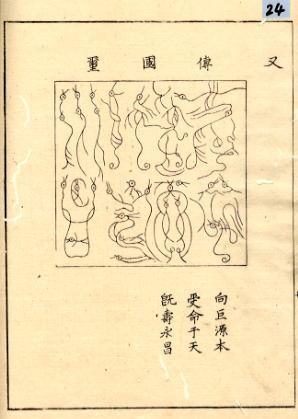 24
又傳國璽
向巨源本
受命于天
既壽永昌